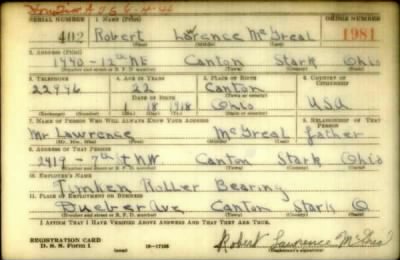 SERIAL NUMBER 1. NAME (Print) ORDER NUMBER
402 Robert Lorence McGreal 1981
(First) (Middle) (Last)
2. ADDRESS (Print)
1440-12th NE Canton Stark Ohio
(Number and street or R. F. D. number) (Town) (County) (State)
3. TELEPHONE 4. AGE IN YEARS 5. PLACE OF BIRTH 6. COUNTRY OF CITIZENSHIP
22946 22 Canton
DATE OF BIRTH (Town or county)
1 18 1918 Ohio USA
(Mo.) (Day) (Yr.) (State or country)
7. NAME OF PERSON WHO WILL ALWAYS KNOW YOUR ADDRESS 8. RELATIONSHIP OF THAT PERSON
Mr Lawrence McGreal father
(Mr., Mrs., Miss) (First) (Middle) (Last)
9. ADDRESS OF THAT PERSON
2419-7th NW Canton Stark Ohio
(Number and street or R. F. D. number) (Town) (County) (State)
10. EMPLOYER'S NAME
Timken Roller Bearing
11. PLACE OF EMPLOYMENT OR BUSINESS
Dueber Ave Canton Stark O
(Number and street or R. F. D. number) (Town) (County) (State)
I AFFIRM THAT I HAVE VERIFIED ABOVE ANSWERS AND THAT THEY ARE TRUE.
REGISTRATION CARD
D. S. S. Form 1 (over) 16-17105 Robert Lawrence McGreal
(Registrant's signature)